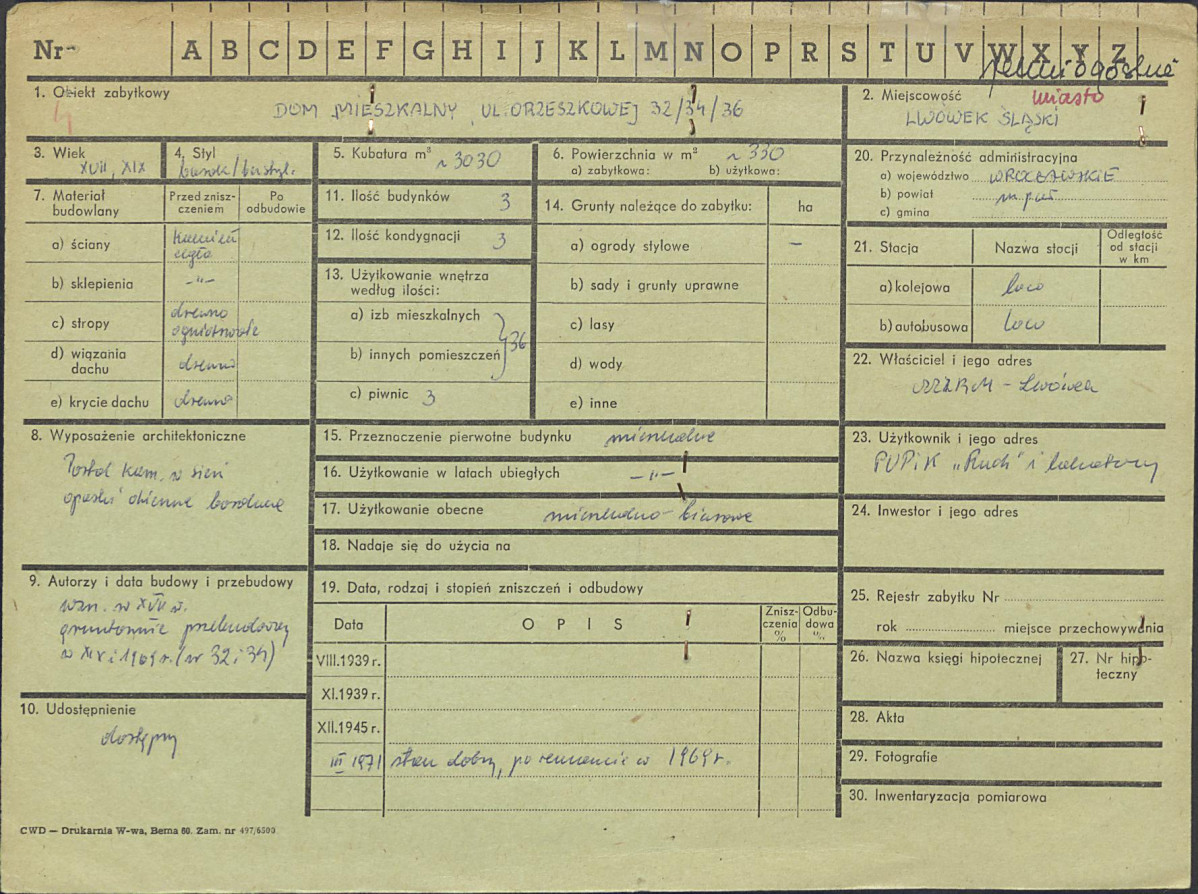 Nr
A B C D E F G H I J K L M N O P R S T U V W X Y Z
1. Obiekt zabytkowy
DOM MIESZKALNY, UL. ORZESZKOWEJ 32/34/36
2. Miejscowość
miasto
LWÓWEK ŚLĄSKI
3. Wiek
XVII, XIX
4. Styl
barok/bezstyl.
5. Kubatura m³
~ 3030
6. Powierzchnia w m²
~ 330
a) zabytkowa: b) użytkowa:
20. Przynależność administracyjna
a) województwo WROCŁAWSKIE
b) powiat
c) gmina
7. Materiał budowlany
Przed zniszczeniem
Po odbudowie
a) ściany
kamień
cegła
b) sklepienia
-"-
c) stropy
drewno
ogniotrwałe
d) wiązania dachu
drewno
e) krycie dachu
drewno
11. Ilość budynków 3
12. Ilość kondygnacji 3
13. Użytkowanie wnętrza
według ilości:
a) izb mieszkalnych
b) innych pomieszczeń
36
c) piwnic 3
14. Grunty należące do zabytku:
ha
a) ogrody stylowe –
b) sady i grunty uprawne
c) lasy
d) wody
e) inne
21. Stacja
Nazwa stacji
Odległość od stacji w km
a) kolejowa loco
b) autobusowa loco
22. Właściciel i jego adres
MZBM - Lwówek
8. Wyposażenie architektoniczne
Portal kam. w sień
opaski okienne
15. Przeznaczenie pierwotne budynku mieszkalne
16. Użytkowanie w latach ubiegłych -"-
17. Użytkowanie obecne mieszkalno-biurowe
18. Nadaje się do użycia na
23. Użytkownik i jego adres
PUPiK „Ruch" i lokatorzy
24. Inwestor i jego adres
9. Autorzy i data budowy i przebudowy
wzn. w XVII w.
gruntownie przebudowany
w XIX i 1969 r. (nr 32 i 34)
19. Data, rodzaj i stopień zniszczeń i odbudowy
Data
OPIS
Zniszczenia %
Odbudowa %
VIII.1939 r.
XI.1939 r.
XII.1945 r.
III 1971 stan dobry, po remoncie w 1969 r.
25. Rejestr zabytku Nr
rok miejsce przechowywania
26. Nazwa księgi hipotecznej
27. Nr hipoteczny
10. Udostępnienie
dostępny
28. Akta
29. Fotografie
30. Inwentaryzacja pomiarowa
CWD — Drukarnia W-wa, Bema 60. Zam. nr 497/6500